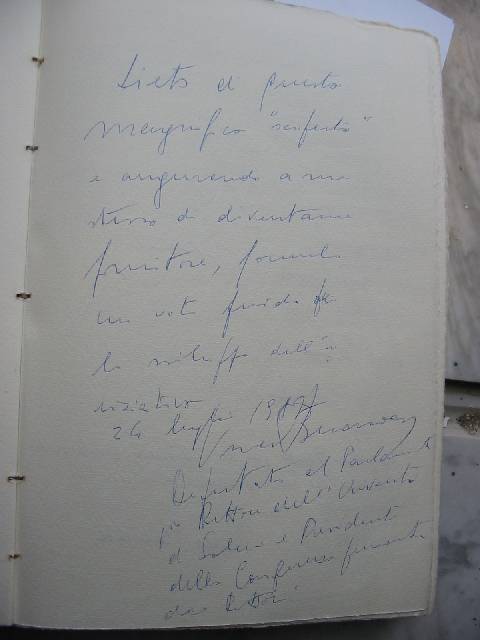 Lieto di questa
magnifica "scoperta"
e augurando a me
stesso di diventarne
fruitore, formulo
un voto fervido per
lo sviluppo dell'
iniziativa
26 luglio 1987
Deputato al Parlamento
già Rettore dell'Università
di Salerno e Presidente
della Conferenza permanente
dei Rettori